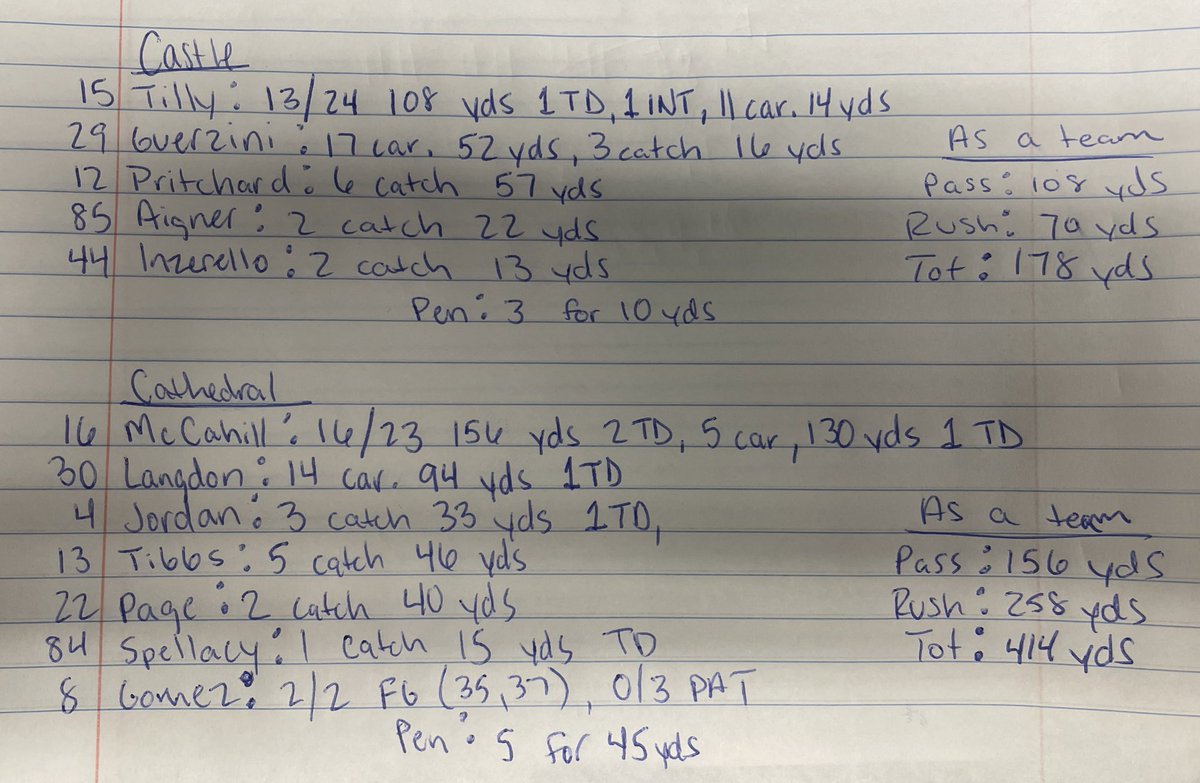 Castle
15 Tilly: 13/24 108 yds 1 TD, 1 INT, 11 car. 14 yds
29 Guerzini: 17 car. 52 yds, 3 catch 16 yds
12 Pritchard: 6 catch 57 yds
85 Aigner: 2 catch 22 yds
44 Inzerello: 2 catch 13 yds
Pen: 3 for 10 yds
As a team
Pass: 108 yds
Rush: 70 yds
Tot: 178 yds
Cathedral
16 McCahill: 16/23 156 yds 2 TD, 5 car, 130 yds 1 TD
30 Langdon: 14 car. 94 yds 1 TD
4 Jordan: 3 catch 33 yds 1 TD,
13 Tibbs: 5 catch 46 yds
22 Page: 2 catch 40 yds
84 Spellacy: 1 catch 15 yds TD
8 Gomez: 2/2 FG (35,37), 0/3 PAT
Pen: 5 for 45 yds
As a team
Pass: 156 yds
Rush: 258 yds
Tot: 414 yds